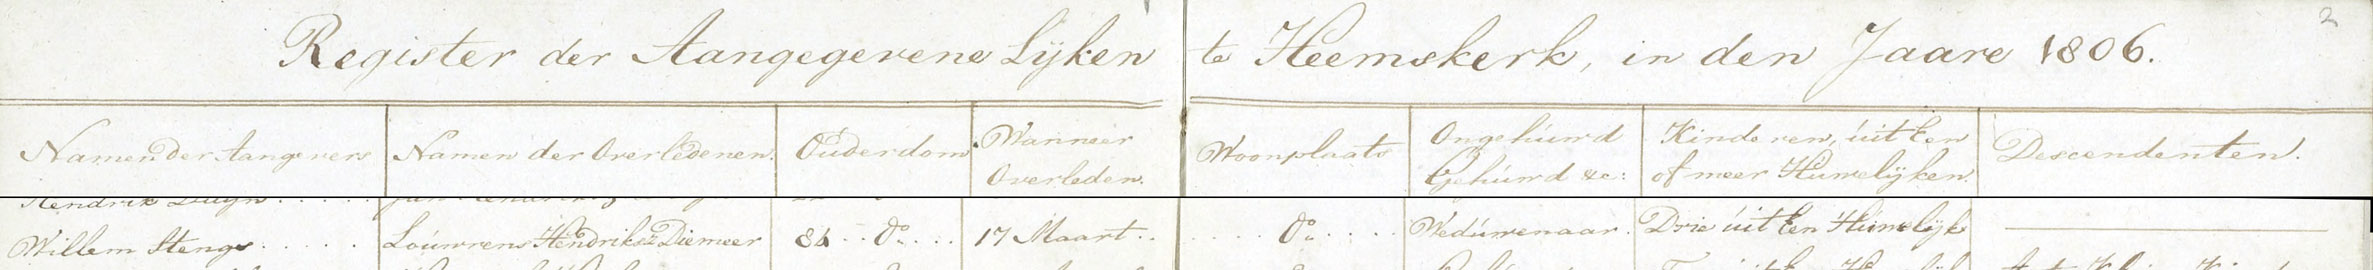 2
Register der Aangegevene Lijken te Heemskerk, in den Jaare 1806.
Namen der Aangevers Namen der Overledenen. Ouderdom Wanneer Overleden. Woonplaats Ongehuwd Gehuwd &c: Kinderen, uit Een of meer Huwelijken. Descendenten.
Hendrik Duijn . . . . .
Willem Stengs . . . . . Louwrens Hendriksz Diemeer 84 . . do. . . . 17 Maart . . . . . . do. . . . . Weduwenaar. Drie uit Een Huwelijk